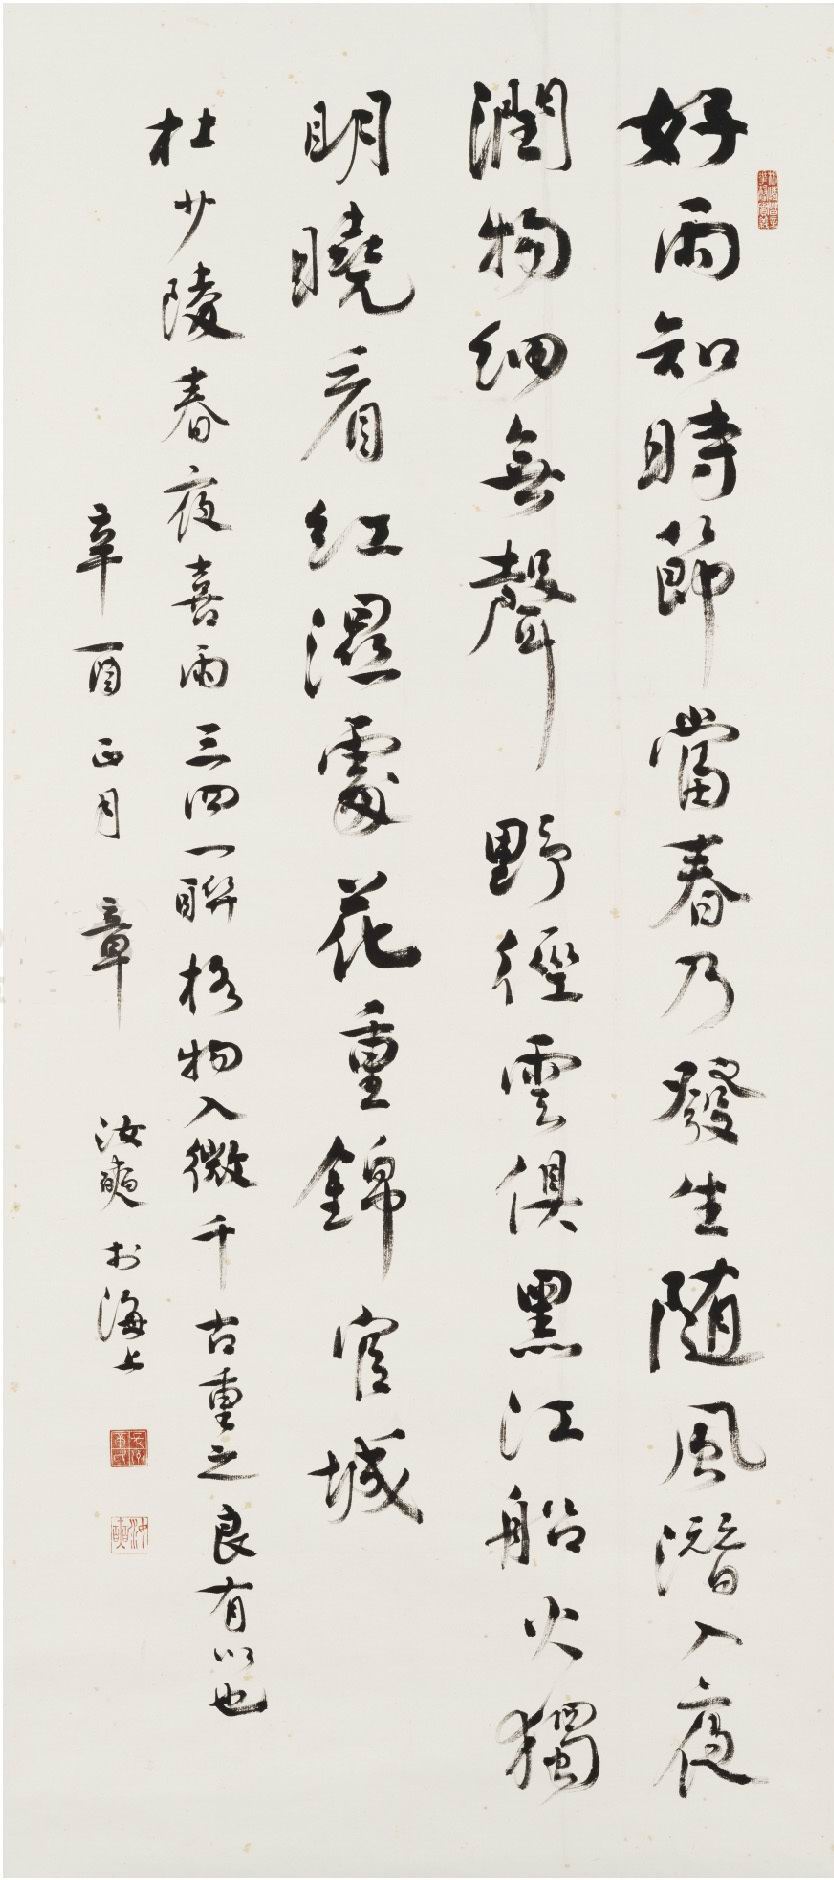 好雨知時節當春乃發生随風潛入夜
潤物細無聲野徑雲俱黑江船火獨
明曉看红濕處花重錦官城
杜少陵春夜喜雨三四一聯格物入微千古重之良有以也
辛酉正月章汝奭於海上
汝奭